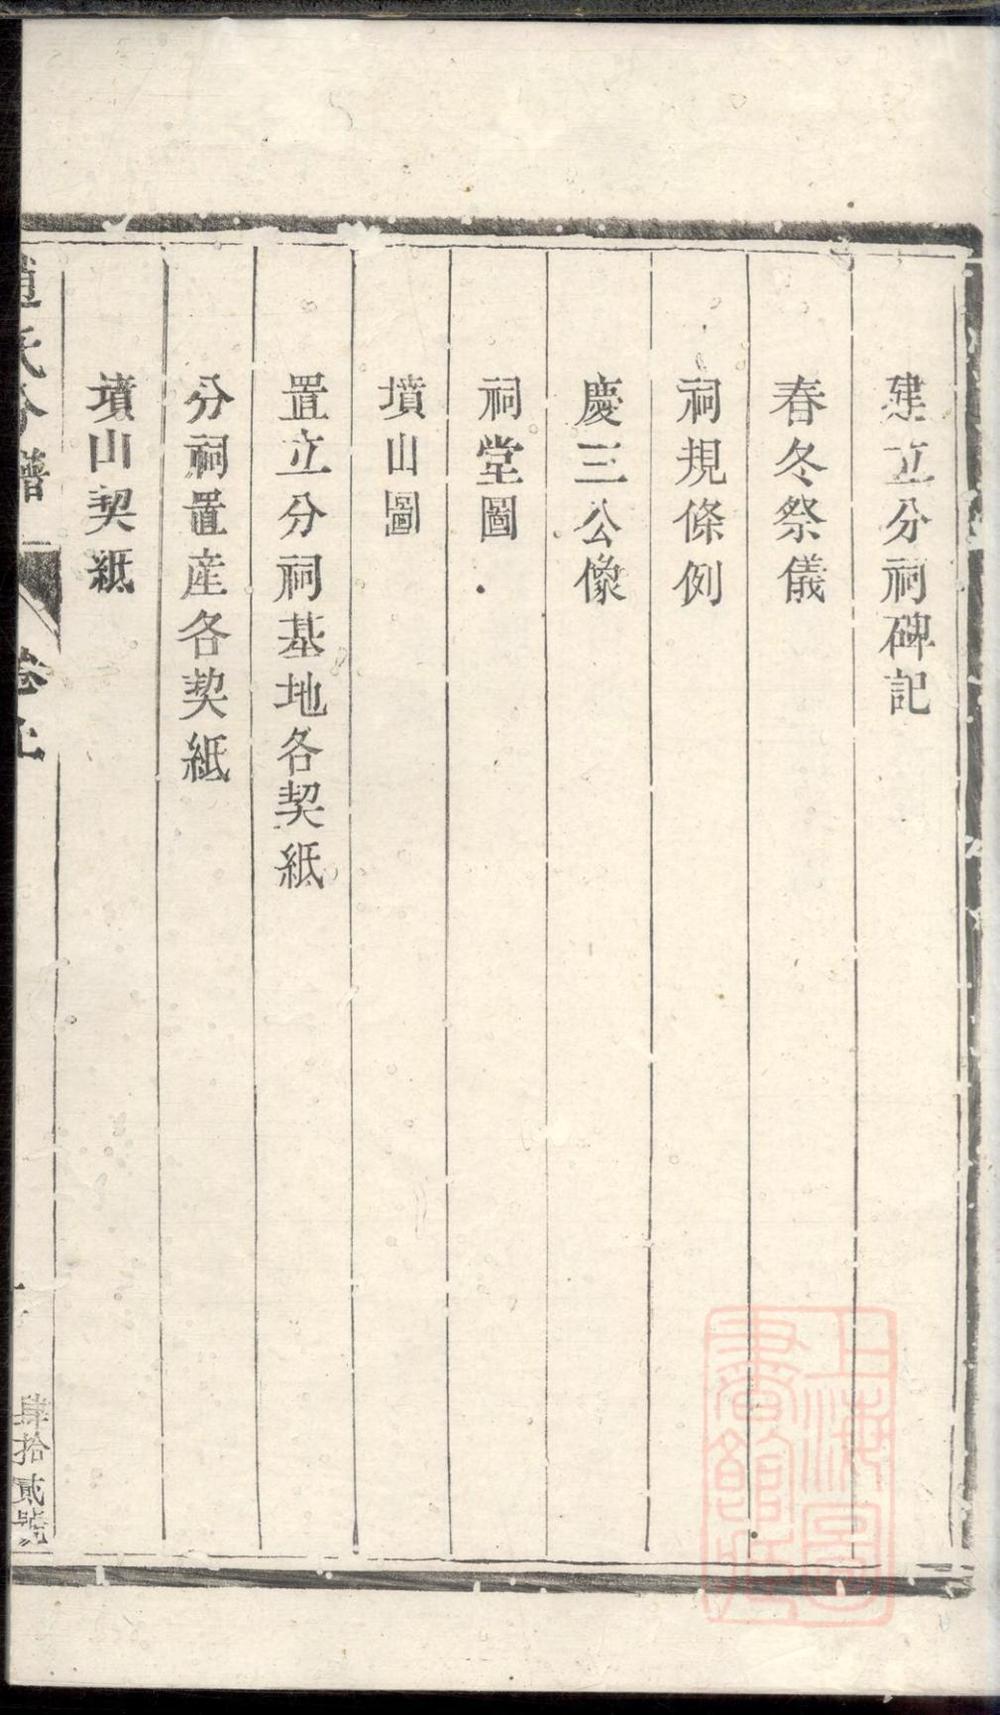 建立分祠碑記
春冬祭儀
祠規條例
慶三公像
祠堂圖
墳山圖
置立分祠基地各契紙
分祠置産各契紙
墳山契紙
氏分譜
肆拾貳號
上海圖書館藏